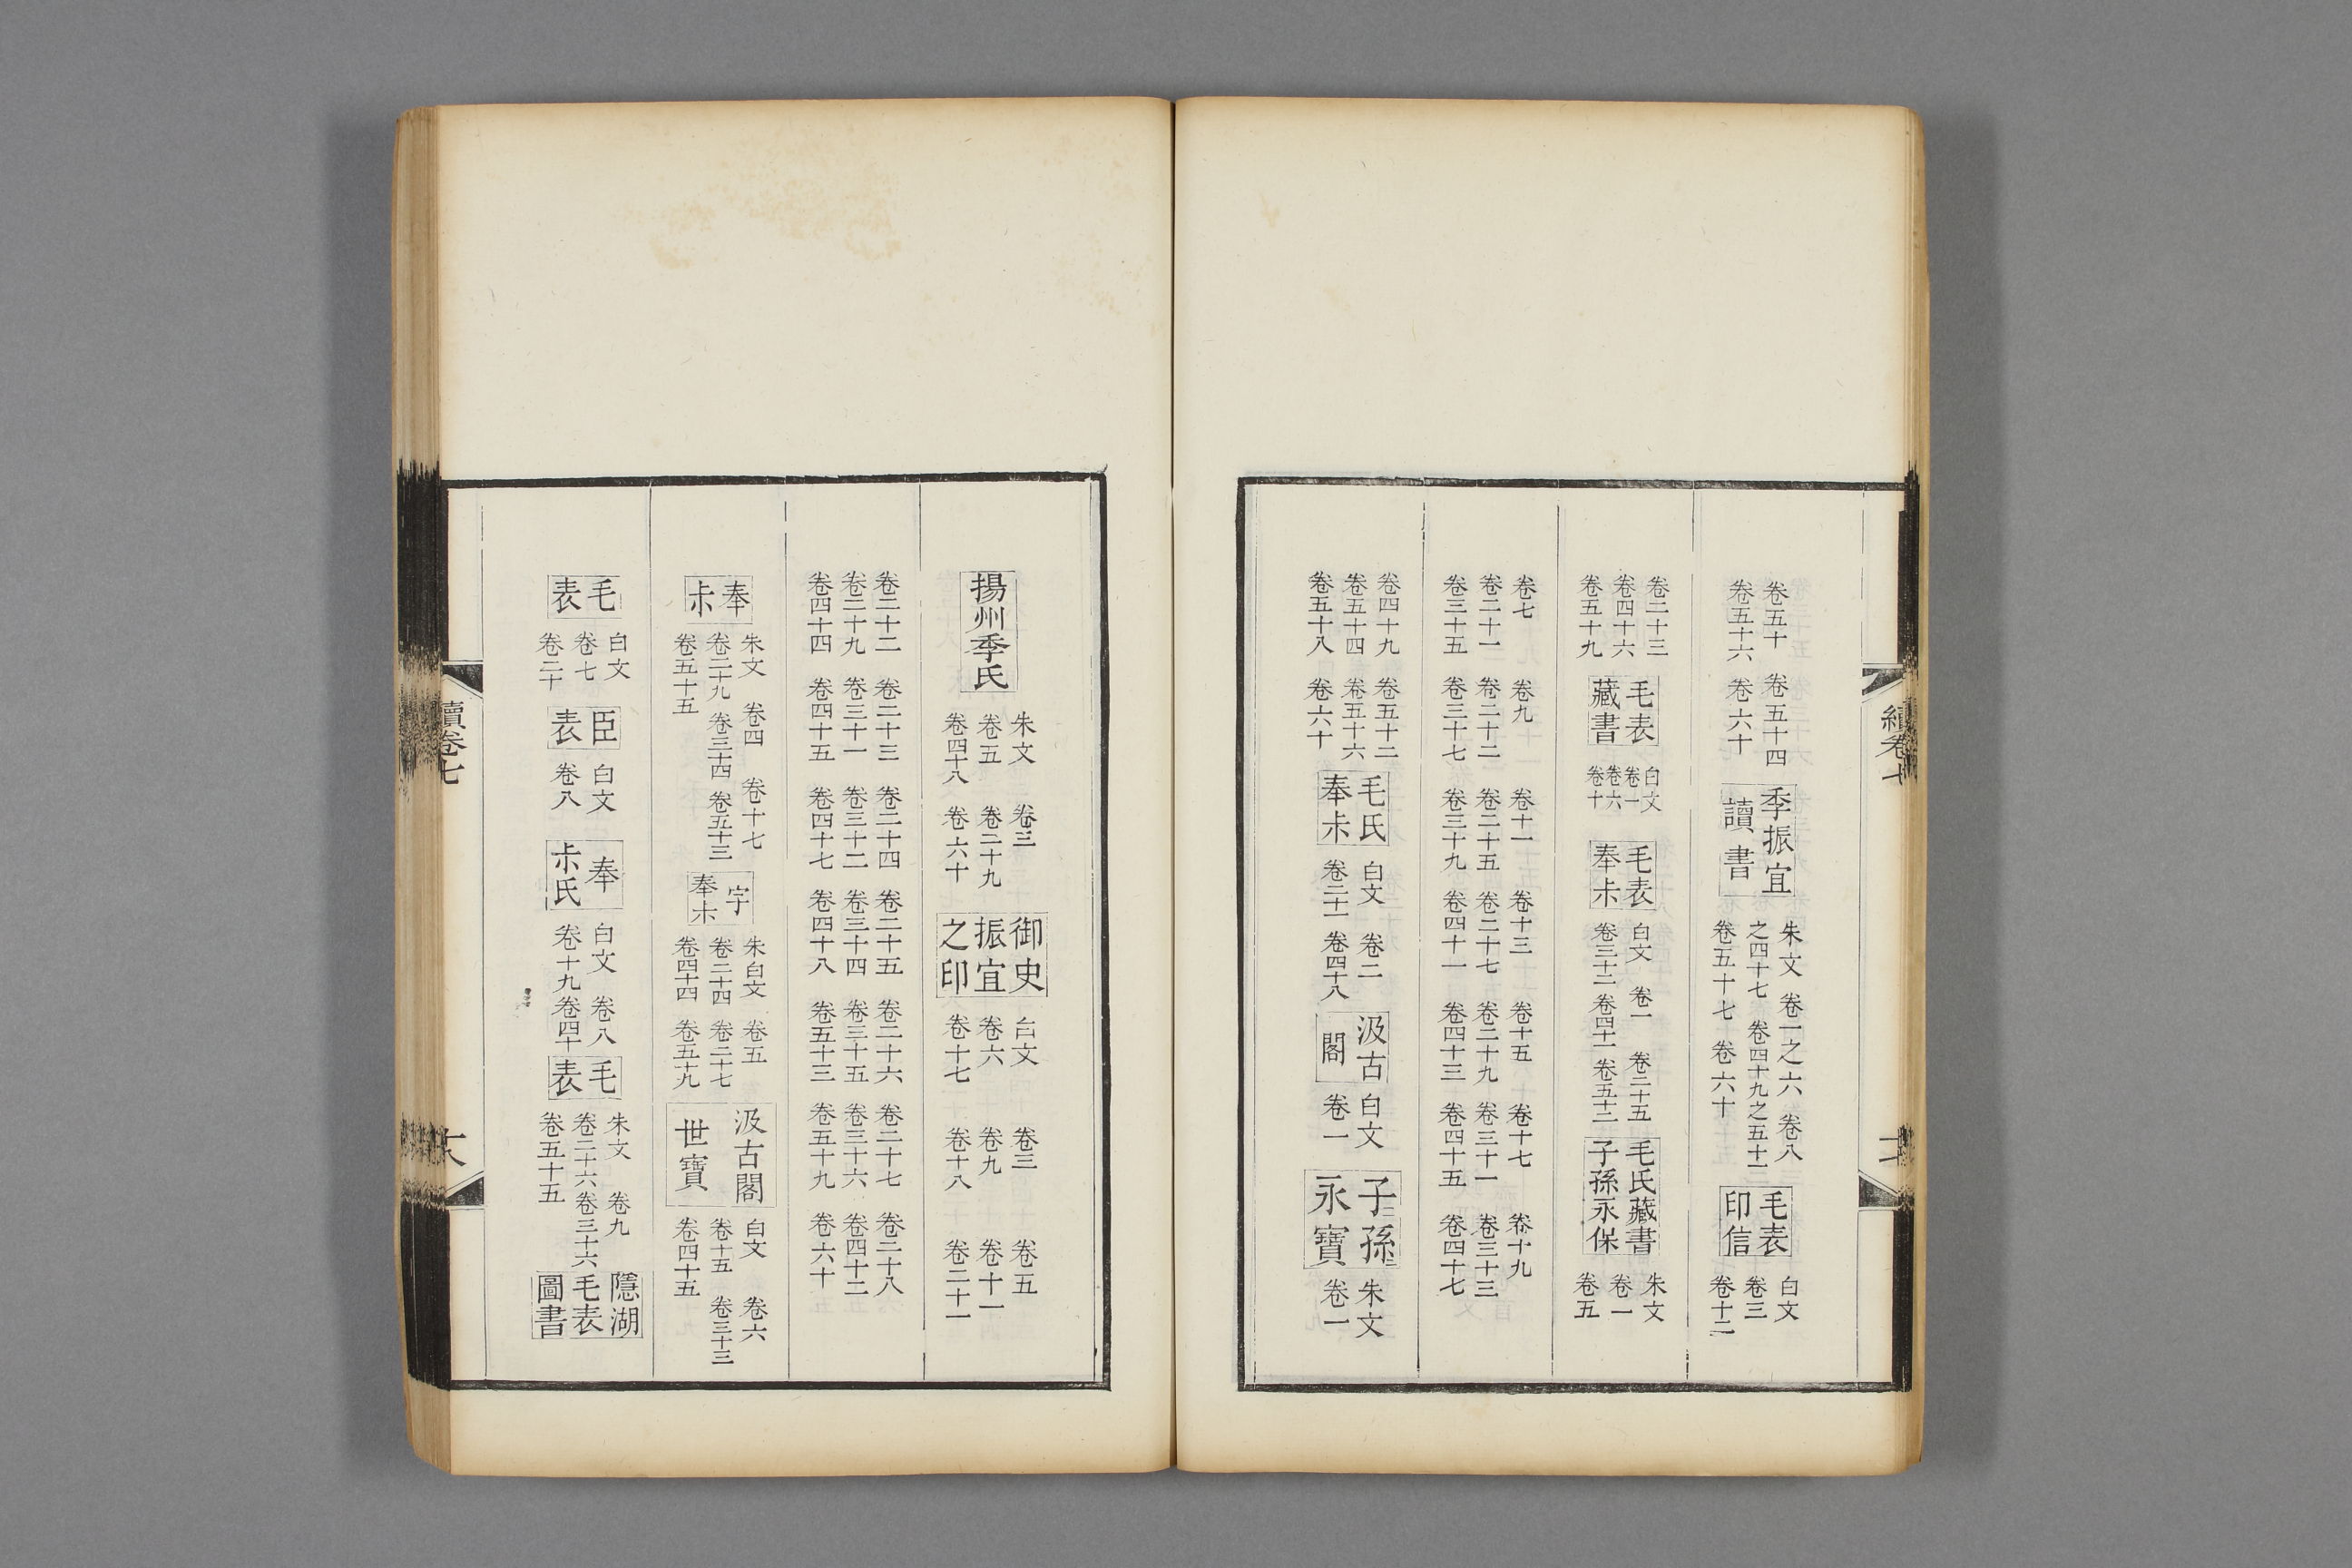 卷五十 卷五十四
卷五十六 卷六十
季振宜
讀書
朱文 卷一之六 卷八
之四十七 卷四十九之五十一
卷五十七 卷六十
毛表
印信
白文
卷三
卷十二
卷二十三
卷四十六
卷五十九
毛表
藏書
白文
卷一
卷六
卷十
毛表
奉尗
白文 卷一 卷二十五
卷三十二 卷四十二 卷五十二
毛氏藏書
子孫永保
朱文
卷一
卷五
卷七 卷九 卷十一 卷十三 卷十五 卷十七 卷十九
卷二十一 卷二十二 卷二十五 卷二十七 卷二十九 卷三十一 卷三十三
卷三十五 卷三十七 卷三十九 卷四十一 卷四十三 卷四十五 卷四十七
卷四十九 卷五十二
卷五十四 卷五十六
卷五十八 卷六十
毛氏
奉尗
白文 卷二
卷二十一 卷四十八
汲古
閣
白文
卷一
子孫
永寶
朱文
卷一
續卷七
揚州季氏
朱文 卷三
卷五 卷二十九
卷四十八 卷六十
御史
振宜
之印
白文 卷三 卷五
卷六 卷九 卷十一
卷十七 卷十八 卷二十一
卷二十二 卷二十三 卷二十四 卷二十五 卷二十六 卷二十七 卷二十八
卷二十九 卷三十一 卷三十二 卷三十四 卷三十五 卷三十六 卷四十二
卷四十四 卷四十五 卷四十七 卷四十八 卷五十三 卷五十九 卷六十
奉
尗
朱文 卷四 卷十七
卷二十九 卷三十四 卷五十三
卷五十五
字
奉尗
朱白文 卷五
卷二十四 卷二十七
卷四十四 卷五十九
汲古閣
世寶
白文 卷六
卷十五 卷三十三
卷四十五
毛
表
白文
卷七
卷二十
臣
表
白文
卷八
奉
尗氏
白文 卷八
卷十九 卷四十
毛
表
朱文 卷九
卷二十六 卷三十六
卷五十五
隱湖
毛表
圖書
續卷七
十八